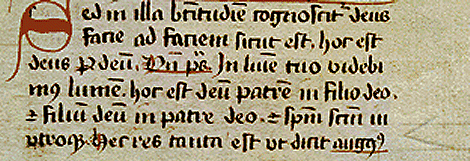 Sed in illa btitudie cognoscit deus
facie ad faciem sicut est. hoc est
deus p deū. Vn̄ pˢ. In luīe tuo videbi
mꝰ lumē. hoc est deū patrē in filio deo.
⁊ filiū deū in patre deo. ⁊ spm̄ scm̄ in
vtroqꝫ. Hec res tanta est ut dicit augꝰ